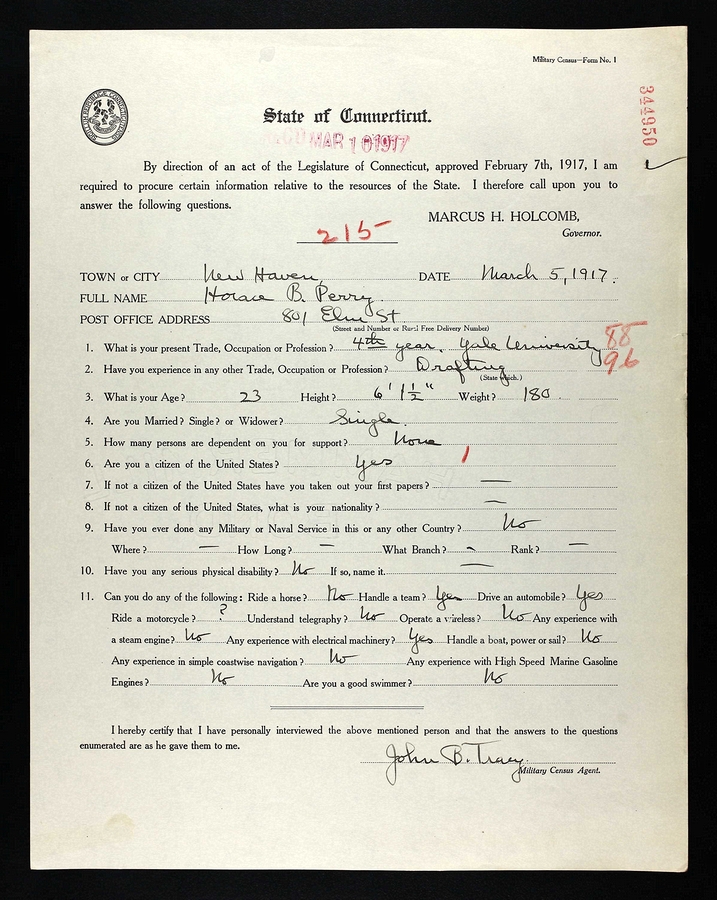 Military Census—Form No. 1
344950
State of Connecticut.
MAR 10 1917
By direction of an act of the Legislature of Connecticut, approved February 7th, 1917, I am
required to procure certain information relative to the resources of the State. I therefore call upon you to
answer the following questions.
MARCUS H. HOLCOMB,
Governor.
215
TOWN or CITY New Haven, DATE March 5, 1917.
FULL NAME Horace B. Perry.
POST OFFICE ADDRESS 801 Elm St
(Street and Number or Rural Free Delivery Number)
88
96
1. What is your present Trade, Occupation or Profession? 4th year. Yale University
2. Have you experience in any other Trade, Occupation or Profession? Drafting
(State which.)
3. What is your Age? 23 Height? 6' 1½" Weight? 180.
4. Are you Married? Single? or Widower? Single.
5. How many persons are dependent on you for support? None
6. Are you a citizen of the United States? Yes
7. If not a citizen of the United States have you taken out your first papers? —
8. If not a citizen of the United States, what is your nationality? —
9. Have you ever done any Military or Naval Service in this or any other Country? No
Where? — How Long? — What Branch? - Rank? —
10. Have you any serious physical disability? No If so, name it. —
11. Can you do any of the following: Ride a horse? No Handle a team? Yes Drive an automobile? Yes
Ride a motorcycle? ? Understand telegraphy? No Operate a wireless? No Any experience with
a steam engine? No Any experience with electrical machinery? Yes Handle a boat, power or sail? No
Any experience in simple coastwise navigation? No Any experience with High Speed Marine Gasoline
Engines? No Are you a good swimmer? No
I hereby certify that I have personally interviewed the above mentioned person and that the answers to the questions
enumerated are as he gave them to me.
John B. Tracy.
Military Census Agent.